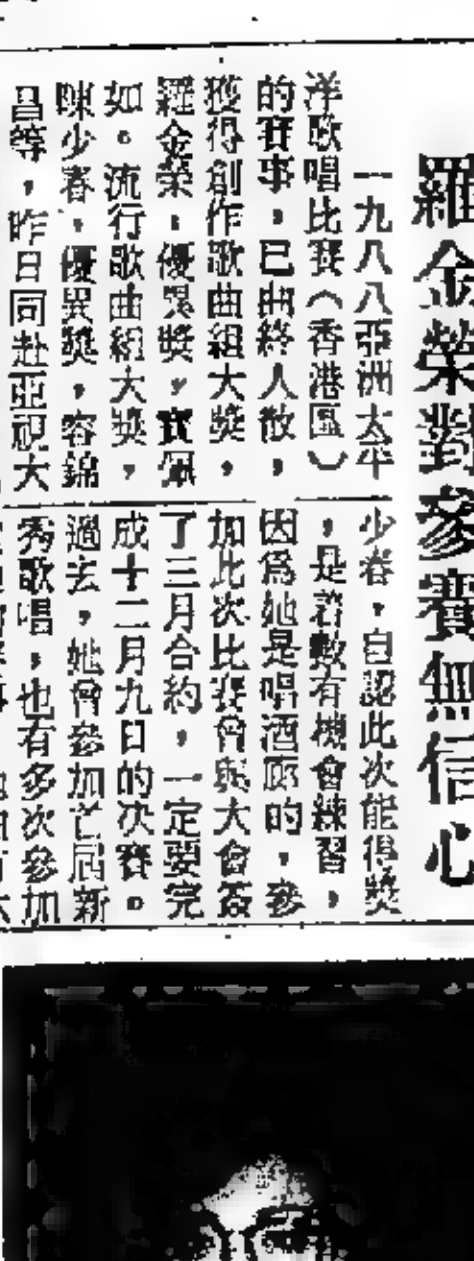 羅金榮對參賽無信心
一九八八亞洲太平
洋歌唱比賽（香港區）
的賽事，已曲終人散，
獲得創作歌曲組大獎，
羅金榮，優異獎，寶佩
如。流行歌曲組大獎，
陳少春，優異獎，容錦
昌等，昨日同赴亞視大
少春，自認此次能得獎
，是著數有機會練習，
因爲她是唱酒廊的，參
加此次比賽曾與大會簽
了三月合約，一定要完
成十二月九日的決賽。
過去，她曾參加芒屆新
秀歌唱，也有多次參加